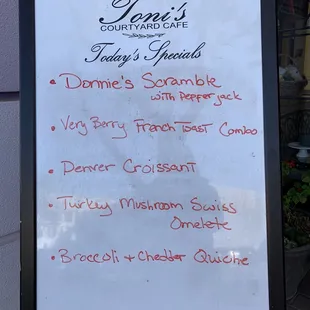 Toni's
COURTYARD CAFE
Today's Specials
• Donnie's Scramble
with Pepperjack
• Very Berry French Toast Combo
• Denver Croissant
• Turkey Mushroom Swiss
Omelete
• Broccoli + Chedder Quiche